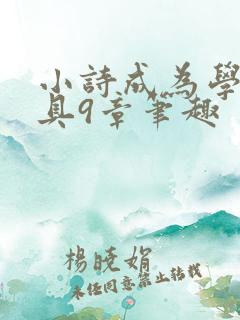 小詩成為學
具9章筆趣
楊曉娟
未經同意禁止轉載